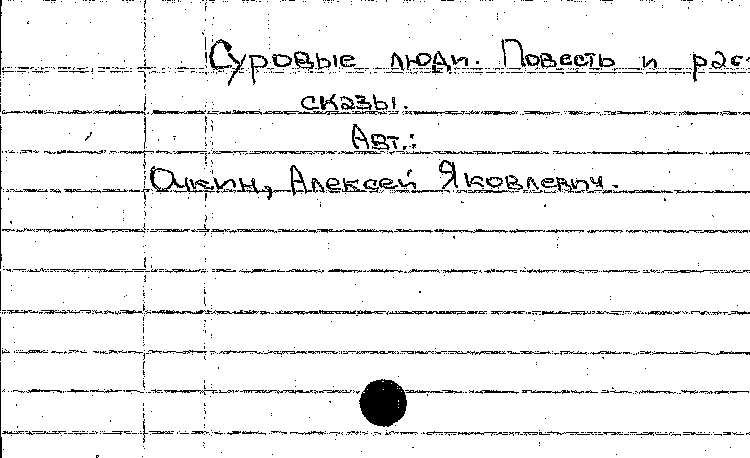 Суровые люди. Повесть и рас-
сказы.
Авт.:
Очкин, Алексей Яковлевич.